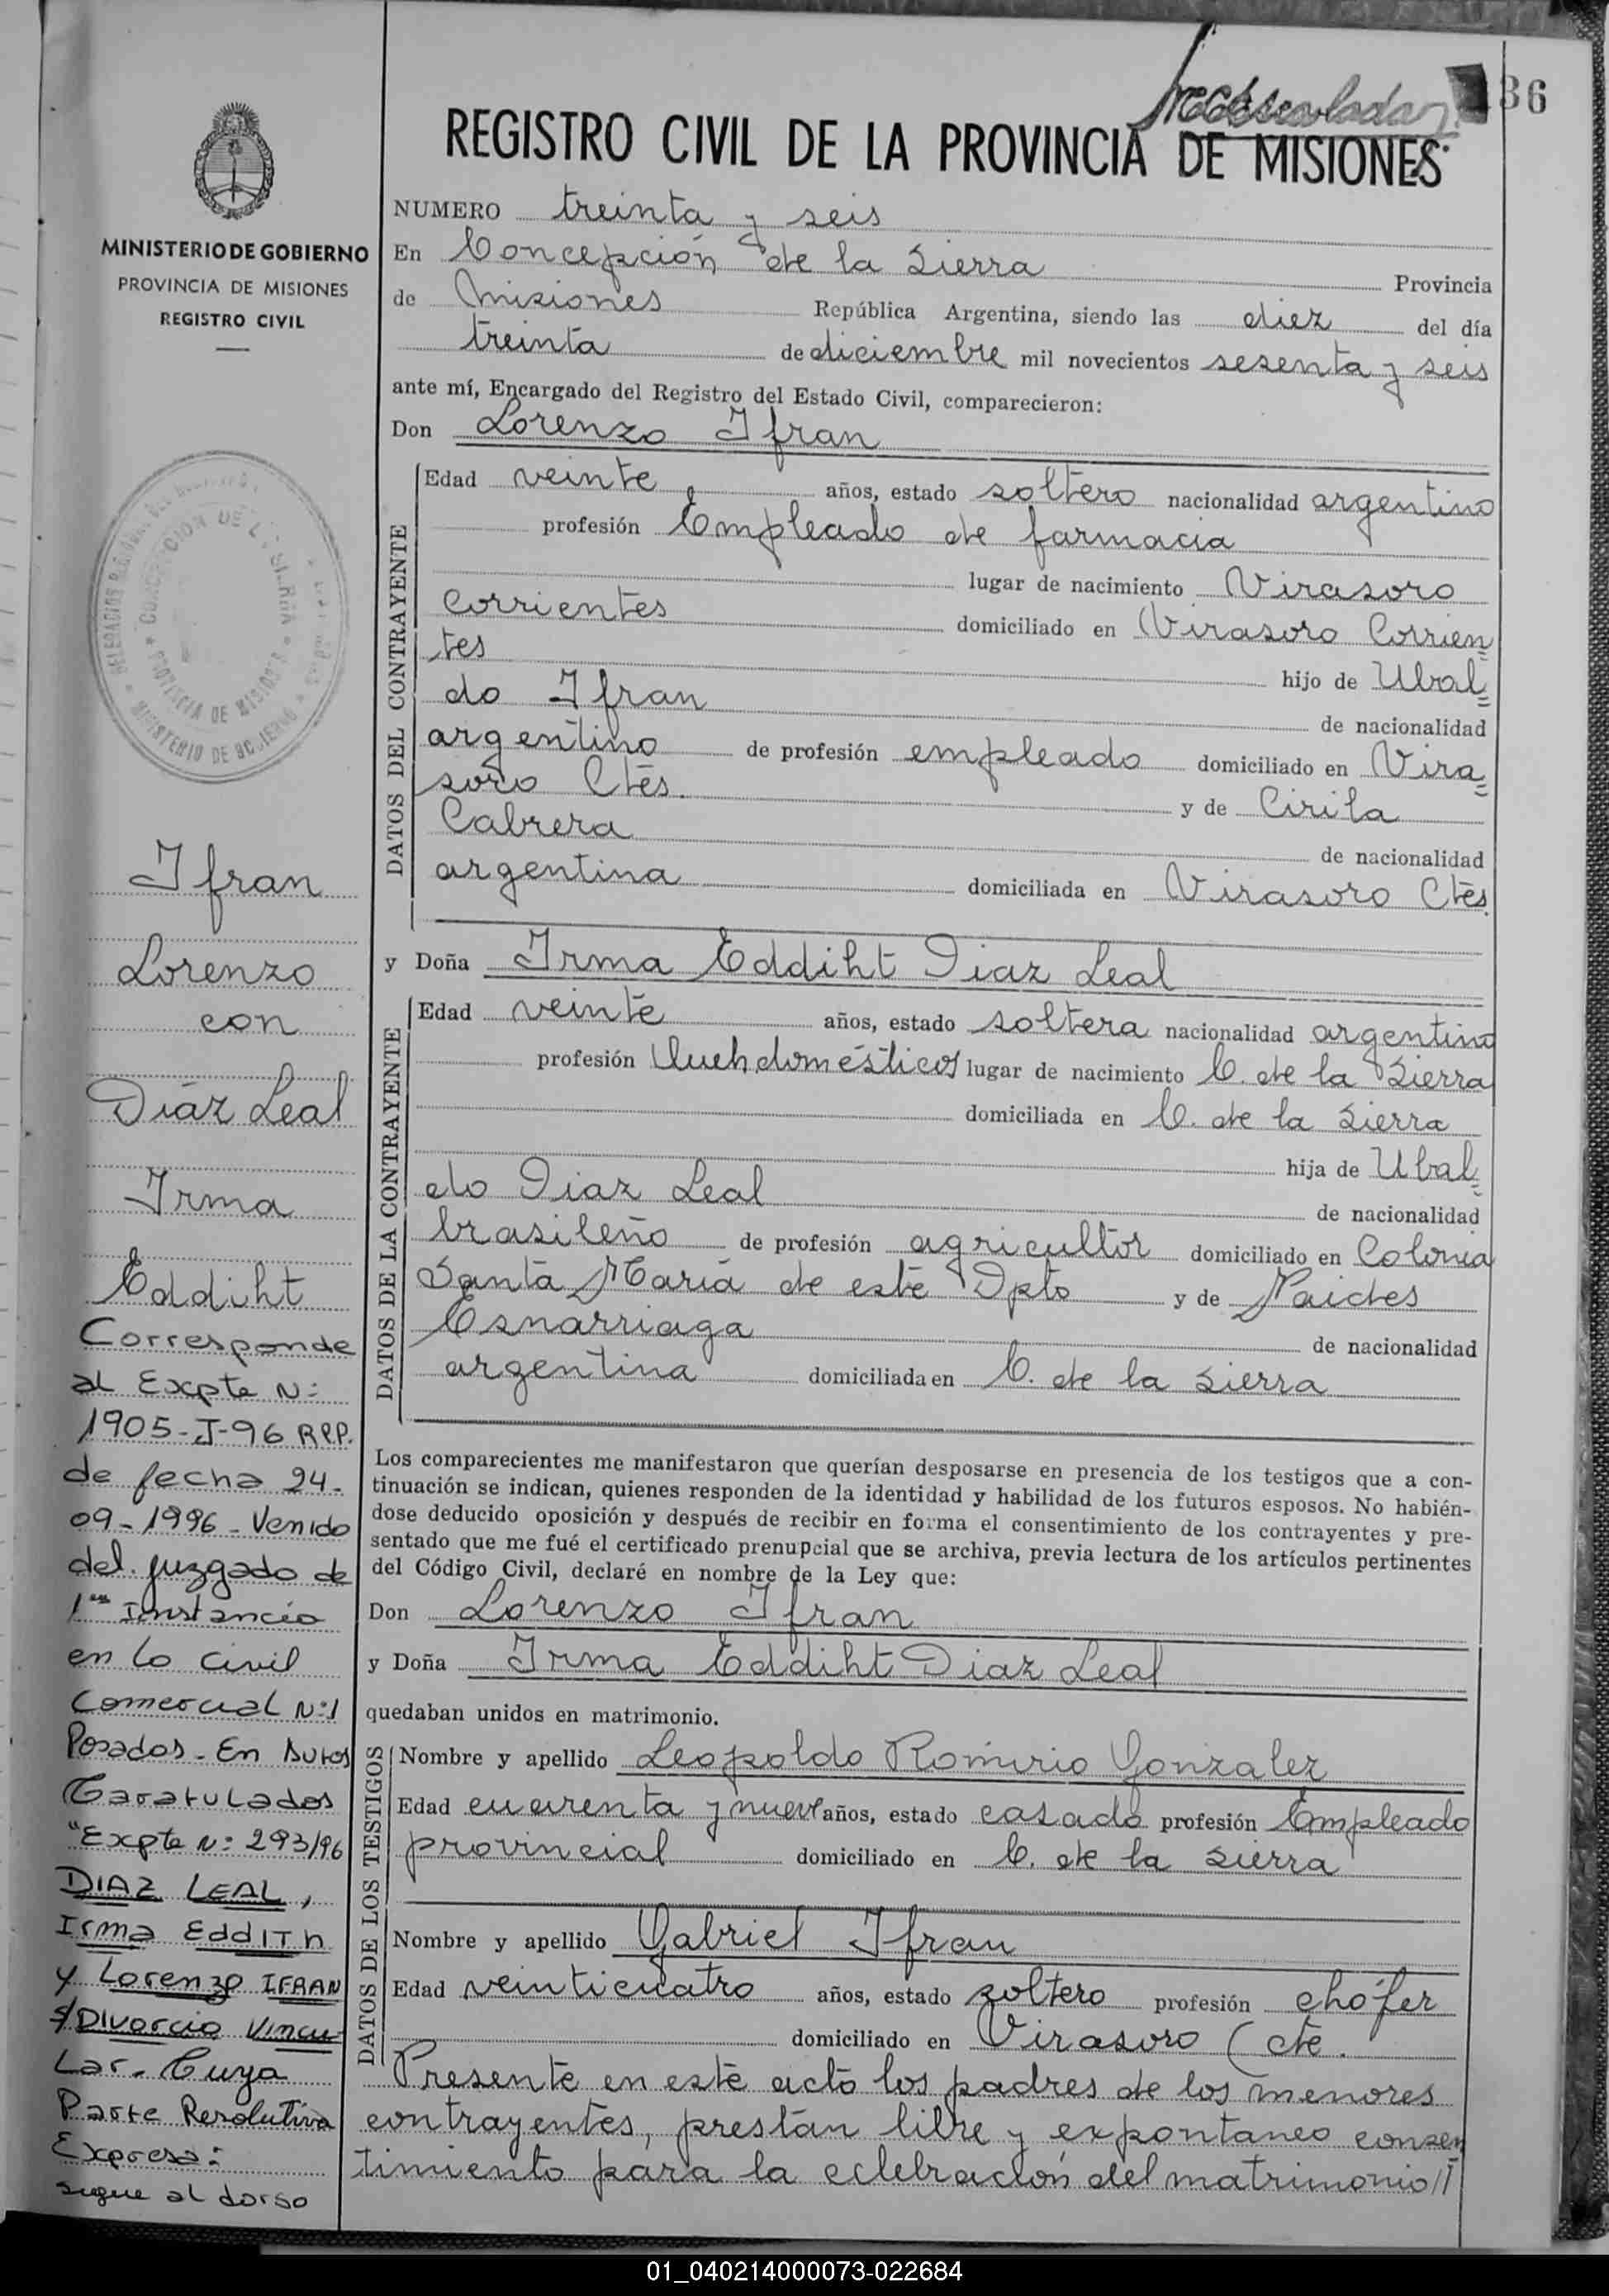 36
REGISTRO CIVIL DE LA PROVINCIA DE MISIONES
MINISTERIO DE GOBIERNO
PROVINCIA DE MISIONES
REGISTRO CIVIL
NUMERO treinta y seis
En Concepción de la Sierra Provincia
de Misiones República Argentina, siendo las diez del día
treinta de diciembre mil novecientos sesenta y seis
ante mí, Encargado del Registro del Estado Civil, comparecieron:
Don Lorenzo Ifran
DATOS DEL CONTRAYENTE
Edad veinte años, estado soltero nacionalidad argentino
profesión Empleado de farmacia
lugar de nacimiento Virasoro
Corrientes domiciliado en Virasoro Corrien=
tes hijo de Ubal=
do Ifran de nacionalidad
argentino de profesión empleado domiciliado en Vira=
soro Ctes. y de Cirila
Cabrera de nacionalidad
argentina domiciliada en Virasoro Ctes.
y Doña Irma Eddiht Diaz Leal
DATOS DE LA CONTRAYENTE
Edad veinte años, estado soltera nacionalidad argentina
profesión Queh. domésticos lugar de nacimiento C. de la Sierra
domiciliada en C. de la Sierra
hija de Ubal=
do Diaz Leal de nacionalidad
brasileño de profesión agricultor domiciliado en Colonia
Santa María de este Dpto y de Naides
Esnarriaga de nacionalidad
argentina domiciliada en C. de la Sierra
Los comparecientes me manifestaron que querían desposarse en presencia de los testigos que a con-
tinuación se indican, quienes responden de la identidad y habilidad de los futuros esposos. No habién-
dose deducido oposición y después de recibir en forma el consentimiento de los contrayentes y pre-
sentado que me fué el certificado prenupcial que se archiva, previa lectura de los artículos pertinentes
del Código Civil, declaré en nombre de la Ley que:
Don Lorenzo Ifran
y Doña Irma Eddiht Diaz Leal
quedaban unidos en matrimonio.
DATOS DE LOS TESTIGOS
Nombre y apellido Leopoldo Romirio Gonzalez
Edad cuarenta y nueve años, estado casado profesión Empleado
provincial domiciliado en C. de la Sierra
Nombre y apellido Gabriel Ifran
Edad veinticuatro años, estado soltero profesión chófer
domiciliado en Virasoro (cte.
Presente en este acto los padres de los menores
contrayentes, prestan libre y expontaneo consen
timiento para la celebracion del matrimonio//
Ifran
Lorenzo
con
Diáz Leal
Irma
Eddiht
Corresponde
al Expte N:
1905-J-96 RPP.
de fecha 24-
09-1996- Venido
del juzgado de
1ra Instancia
en lo Civil
Comercial N:1
Posadas- En Autos
Caratulados
"Expte N: 293/96
DIAZ LEAL,
Irma EddITh
y Lorenzo IFRAN
s/Divorcio Vincu
Lar- Cuya
Parte Resolutiva
Expresa:
sigue al dorso
01_040214000073-022684